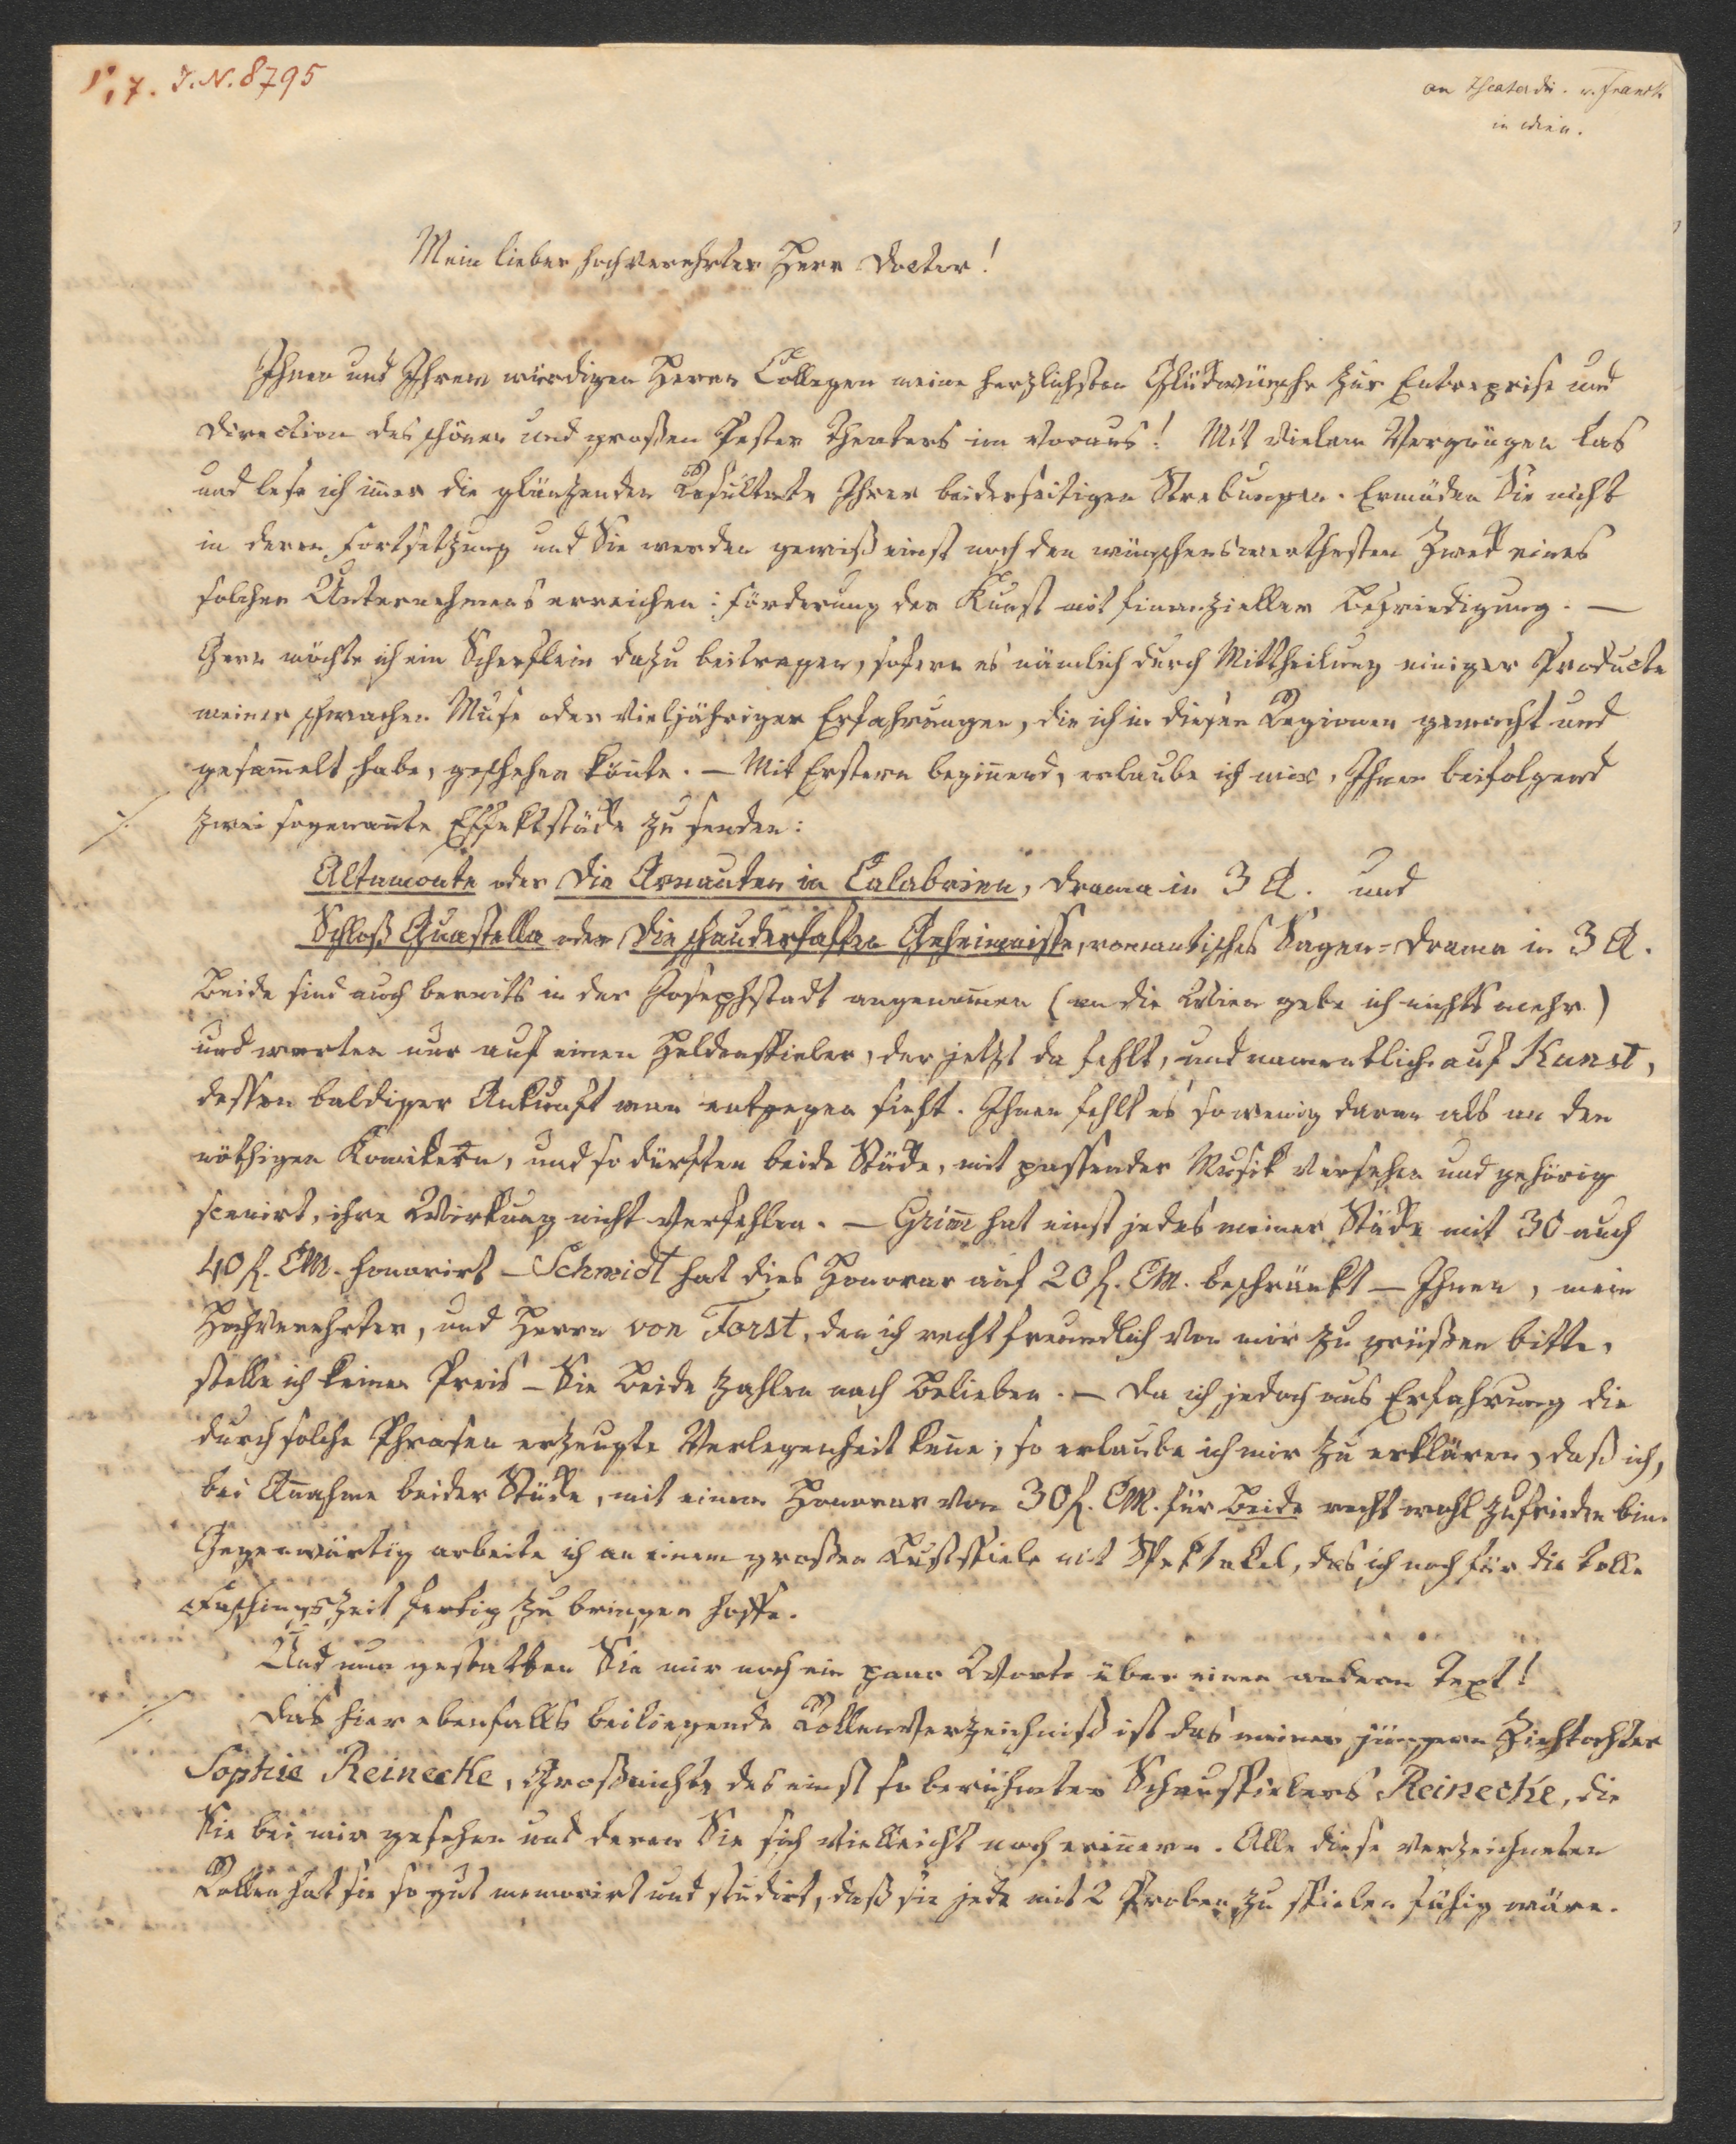 I. N. 8795
an Theaterdir. v. Franck
in Wien.
Mein lieber hochverehrter Herr Doctor!
Ihnen und Ihrem würdigen Herrn Collegen meine herzlichsten Glückwünsche zur Entreprise und
Direction des schönen und großen Pester Theaters im Voraus! Mit vielem Vergnügen las
und lese ich im̄er die glänzenden Resultate Ihrer beiderseitigen Strebungen. Ermüden Sie nicht
in deren Fortsetzung und Sie werden gewiß einst noch den wünschenswerthesten Zweck eines
solchen Unternehmens erreichen: Förderung der Kunst mit finanzieller Befriedigung. —
Gern möchte ich ein Scherflein dazu beitragen, sofern es nämlich durch Mittheilung einiger Producte
meiner schwachen Muse oder vieljähriger Erfahrungen, die ich in diesen Regionen gemacht und
gesam̄elt habe, geschehen kön̄te. — Mit Erstern begin̄end, erlaube ich mir, Ihnen beifolgend
./. zwei sogenan̄te Effektstücke zu senden:
Altamonte oder Die Arnauten in Calabrien, Drama in 3 A. und
Schloß Guastella oder Die schauderhaften Geheimnisse, romantisches Sagen=Drama in 3 A.
Beide sind auch bereits in der Josephstadt angenom̄en (an die Wien gebe ich nichts mehr)
und warten nur auf einen Heldenspieler, der jetzt da fehlt, und namentlich auf Kunst,
dessen baldiger Ankunft man entgegen sieht. Ihnen fehlt es sowenig daran als an den
nöthigen Komikern, und so dürften beide Stücke, mit passender Musik versehen und gehörig
scenirt, ihre Wirkung nicht verfehlen. — Grim̄ hat einst jedes meiner Stücke mit 30 auch
40 f. CM. honorirt — Schmidt hat dies Honorar auf 20 f. CM. beschränkt — Ihnen, mein
Hochverehrter, und Herrn von Forst, den ich recht freundlich von mir zu grüßen bitte,
stelle ich keinen Preis — Sie Beide zahlen nach Belieben. — Da ich jedoch aus Erfahrung die
durch solche Phrasen erzeugte Verlegenheit ken̄e, so erlaube ich mir zu erklären, daß ich,
bei An̄ahme beider Stücke, mit einem Honorar von 30 f. CM. für Beide recht wohl zufrieden bin.
Gegenwärtig arbeite ich an einem großen Lustspiele mit Spektakel, das ich noch für die tolle
Faschingszeit fertig zu bringen hoffe.
Und nun gestatten Sie mir noch ein paar Worte über einen andern Text!
./. Das hier ebenfalls beiliegende Rollenverzeichniß ist das meiner jüngern Ziehtochter
Sophie Reinecke, Großnichte des einst so berühmten Schauspielers Reinecke, die
Sie bei mir gesehen und deren Sie sich vielleicht noch erin̄ern. Alle diese verzeichneten
Rollen hat sie so gut memorirt und studirt, daß sie jede mit 2 Proben zu spielen fähig wäre.